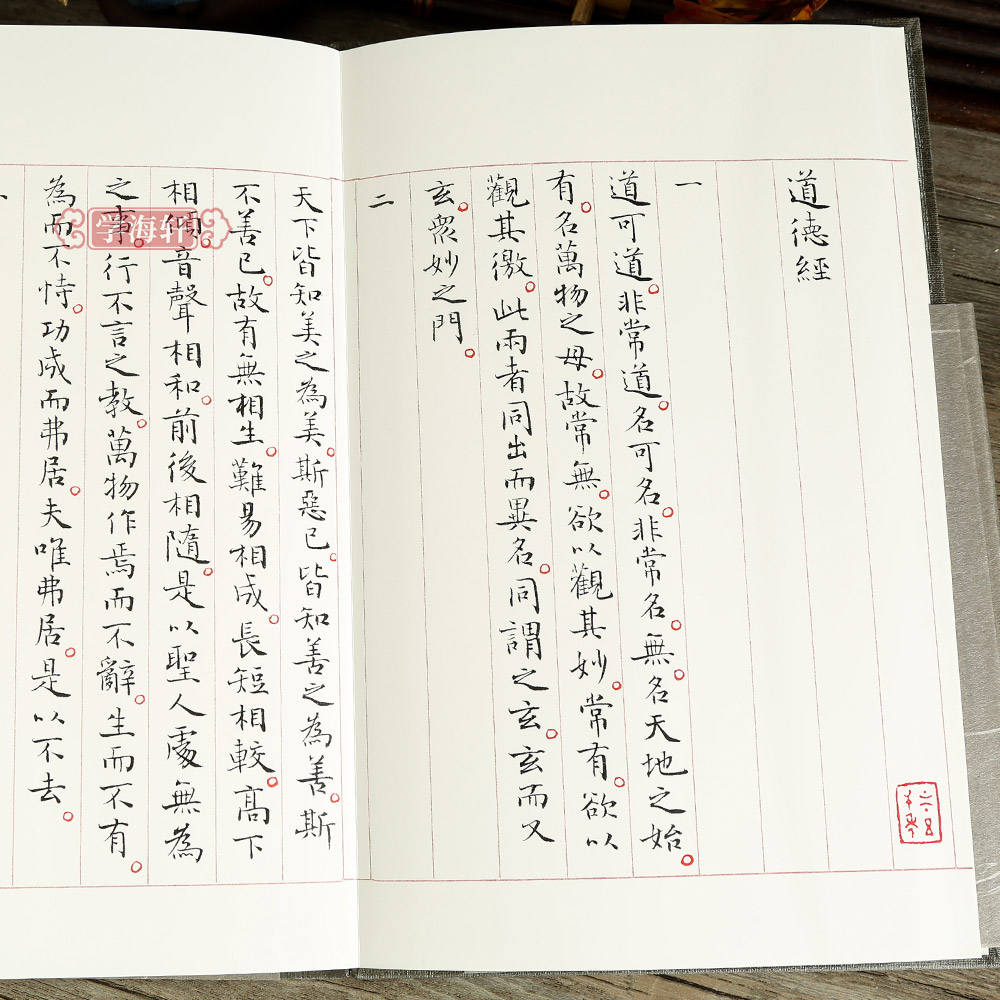 道德經
一
道可道。非常道。名可名。非常名。無。名天地之始。
有。名萬物之母。故常無。欲以觀其妙。常有。欲以
觀其徼。此兩者同出而異名。同謂之玄。玄而又
玄。衆妙之門。
二
天下皆知美之為美。斯惡已。皆知善之為善。斯
不善已。故有無相生。難易相成。長短相較。高下
相傾。音聲相和。前後相隨。是以聖人處無為
之事。行不言之教。萬物作焉而不辭。生而不有。
為而不恃。功成而弗居。夫唯弗居。是以不去。
学海轩